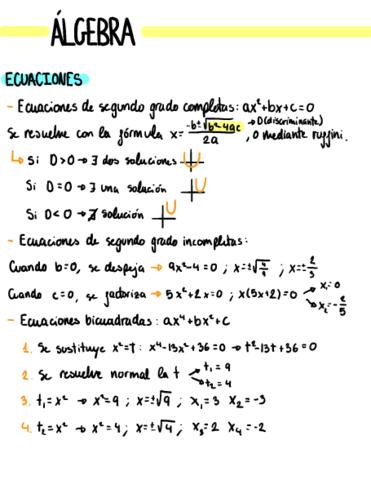 ÁLGEBRA
ECUACIONES
- Ecuaciones de segundo grado completas: ax²+bx+c=0
Se resuelve con la fórmula x= -b±√b²-4ac / 2a → D(discriminante), o mediante ruffini.
↳ Si D>0 → ∃ dos soluciones
Si D=0 → ∃ una solución
Si D<0 → ∄ solución
- Ecuaciones de segundo grado incompletas:
Cuando b=0, se despeja → 9x²-4=0 ; x=±√4/9 ; x=±2/3
Cuando c=0, se factoriza → 5x²+2x=0 ; x(5x+2)=0 → x₁=0 → x₂=-2/5
- Ecuaciones bicuadradas: ax⁴+bx²+c
1. Se sustituye x²=t: x⁴-13x²+36=0 → t²-13t+36=0
2. Se resuelve normal la t → t₁=9 → t₂=4
3. t₁=x² → x²=9 ; x=±√9 ; x₁=3 x₂=-3
4. t₂=x² → x²=4 ; x=±√4 ; x₃=2 x₄=-2